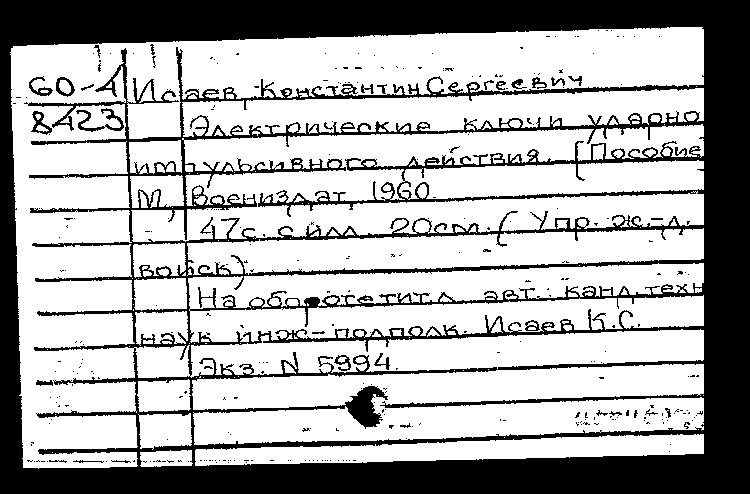 60-4 Исаев, Константин Сергеевич
8423 Электрические ключи ударно
импульсивного действия. [Пособие
М, Воениздат, 1960
47с. с илл. 20см. (Упр. ж-д.
войск).
На обороте тит.л авт.: канд. техн
наук инж-подполк. Исаев К.С.
Экз. N 5994